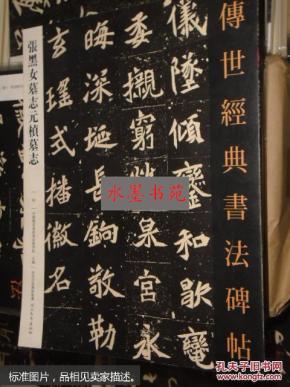 傳世經典書法碑帖
儀墜傾鑾和歇轡
委櫬窮塋泉宮永
晦深埏長鋦敬勒
玄瑤式播徽名
張黑女墓志元楨墓志
水墨书苑
标准图片，品相见卖家描述。